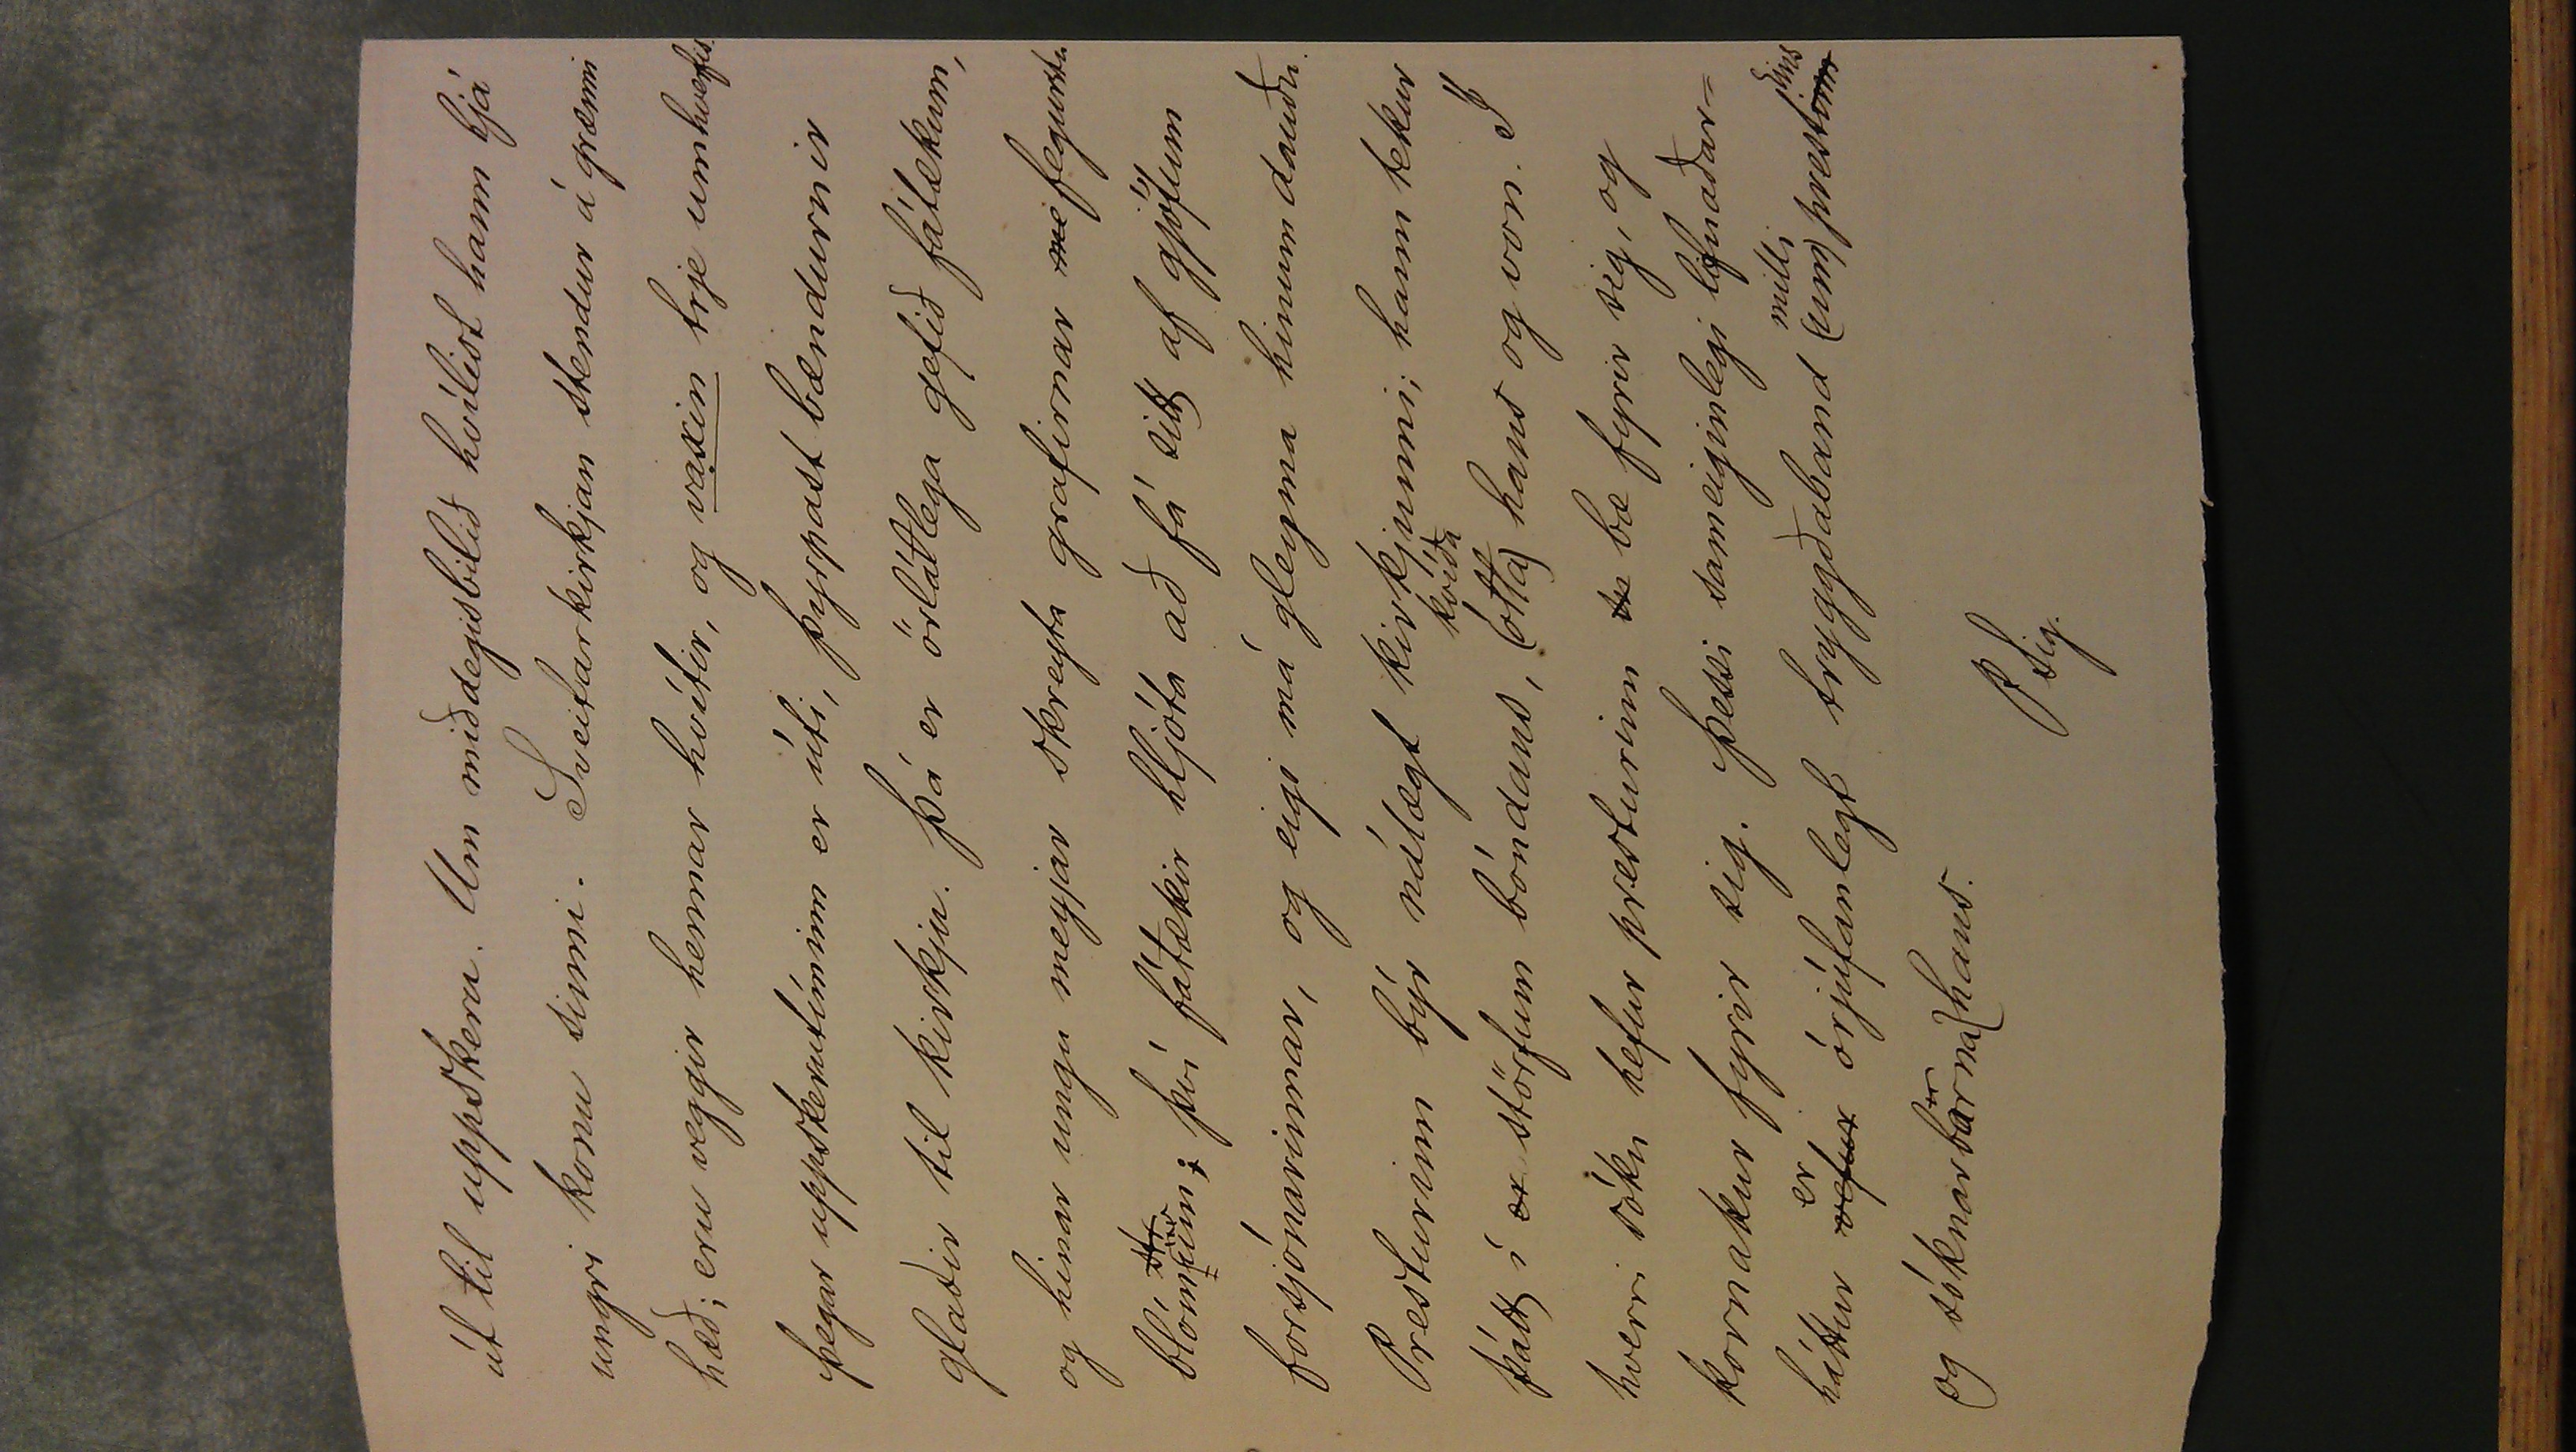 út til uppskeru. Um miðdegisbilið hvílist hann hjá
ungri konu sinni. Sveitarkirkjan stendur á grænni
hæð; eru veggir hennar hvítir, og vaxin trje umhverfis.
þegar uppskerutíminn er úti, þyrpast bændurnir
glaðir til kirkju. Þá er örlátlega gefið fátækum,
og hinar ungu meyjar skreyta grafirnar me fegurstu
blómum; því fátækir hljóta að fá sitt af gjöfum
forsjónarinnar, og eigi má gleyma hinum dauðu.
Presturinn býr nálægt kirkjunni; hann tekur
kvíða
þátt í er störfum bóndans, (ótta) hans og von. Í
hverri sókn hefur presturinn bæ fyrir sig, og
kornakur fyrir sig. Þessi sameiginlegi lifnaðar=
er milli sins
háttur vefur órjúfanlegt tryggðaband (um) prestsins
og sóknarbarna hans.
P Sig.